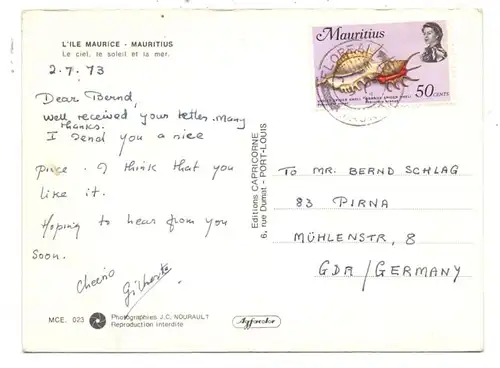 L'ILE MAURICE - MAURITIUS
Le ciel, le soleil et la mer.
2.7.73
Dear Bernd,
Well received your letter. Many
thanks.
I send you a nice
piece. I think that you
like it.
Hoping to hear from you
soon.
Cheerio
MCE. 023
Photographies J.C. NOURAULT
Reproduction interdite
Agfacolor
Editions CAPRICORNE
6, rue Dumat - PORT-LOUIS
Mauritius
50 CENTS
TO MR. BERND SCHLAG
83 PIRNA
MÜHLENSTR, 8
GDR/GERMANY